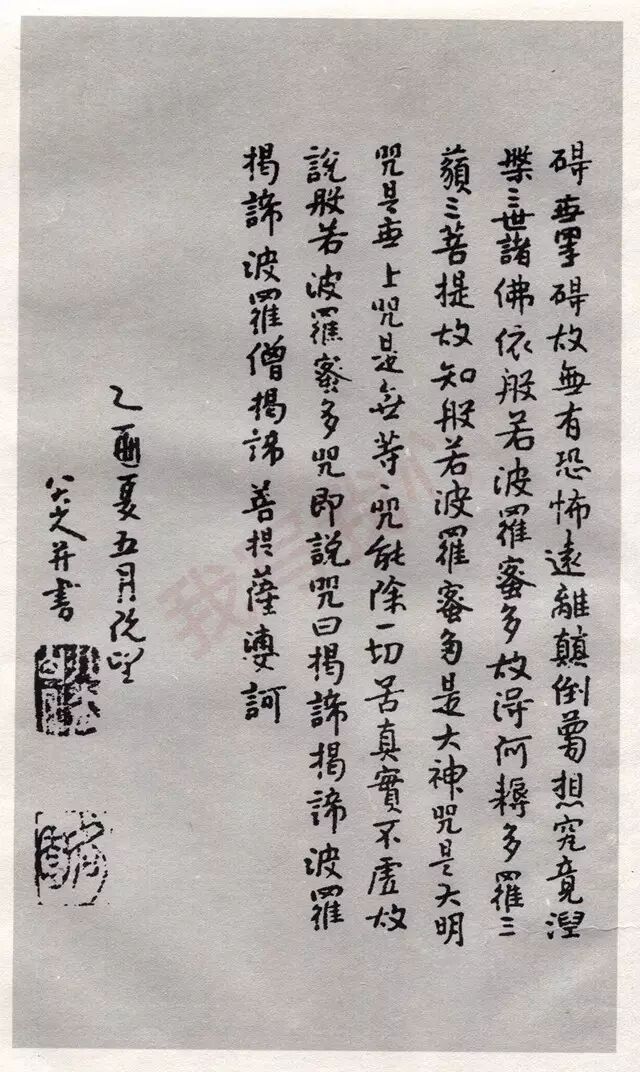 碍無罣碍故無有恐怖遠離顛倒夢想究竟涅
槃三世諸佛依般若波羅蜜多故得何耨多羅三
藐三菩提故知般若波羅蜜多是大神咒是大明
咒是無上咒是無等、咒能除一切苦真實不虛故
說般若波羅蜜多咒即說咒曰揭諦揭諦波羅
揭諦波羅僧揭諦菩提薩婆訶
乙酉夏五月既望
八大并書